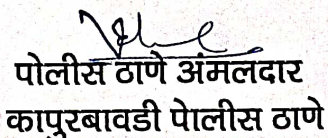 पोलीस ठाणे अंमलदार
कापुरबावडी पेालीस ठाणे